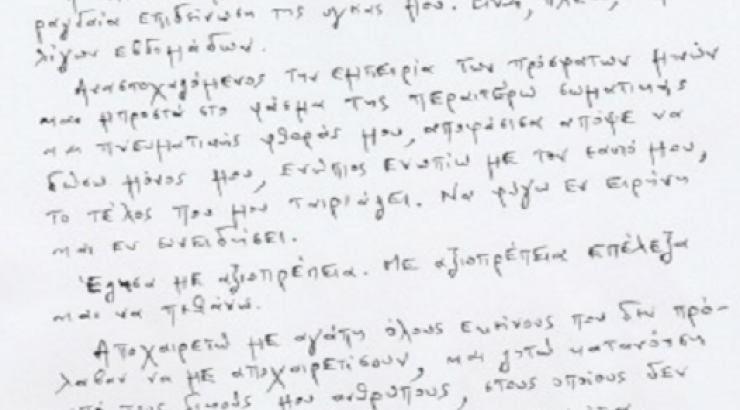 ραγδαία επιδείνωση της υγείας μου. Είναι, πλέον,
λίγων εβδομάδων.
Αναστοχαζόμενος την εμπειρία των πρόσφατων μηνών
και μπροστά στο φάσμα της περαιτέρω σωματικής
και πνευματικής φθοράς μου, αποφάσισα απόψε να
δώσω μόνος μου, ενώπιος ενωπίω με τον εαυτό μου,
το τέλος που μου ταιριάζει. Να φύγω εν ειρήνη
και εν συνειδήσει.
Έζησα με αξιοπρέπεια. Με αξιοπρέπεια επέλεξα
και να πεθάνω.
Αποχαιρετώ με αγάπη όλους εκείνους που δεν πρό-
λαβαν να με αποχαιρετίσουν, και ζητώ κατανόηση
από τους δικούς μου ανθρώπους, στους οποίους δεν